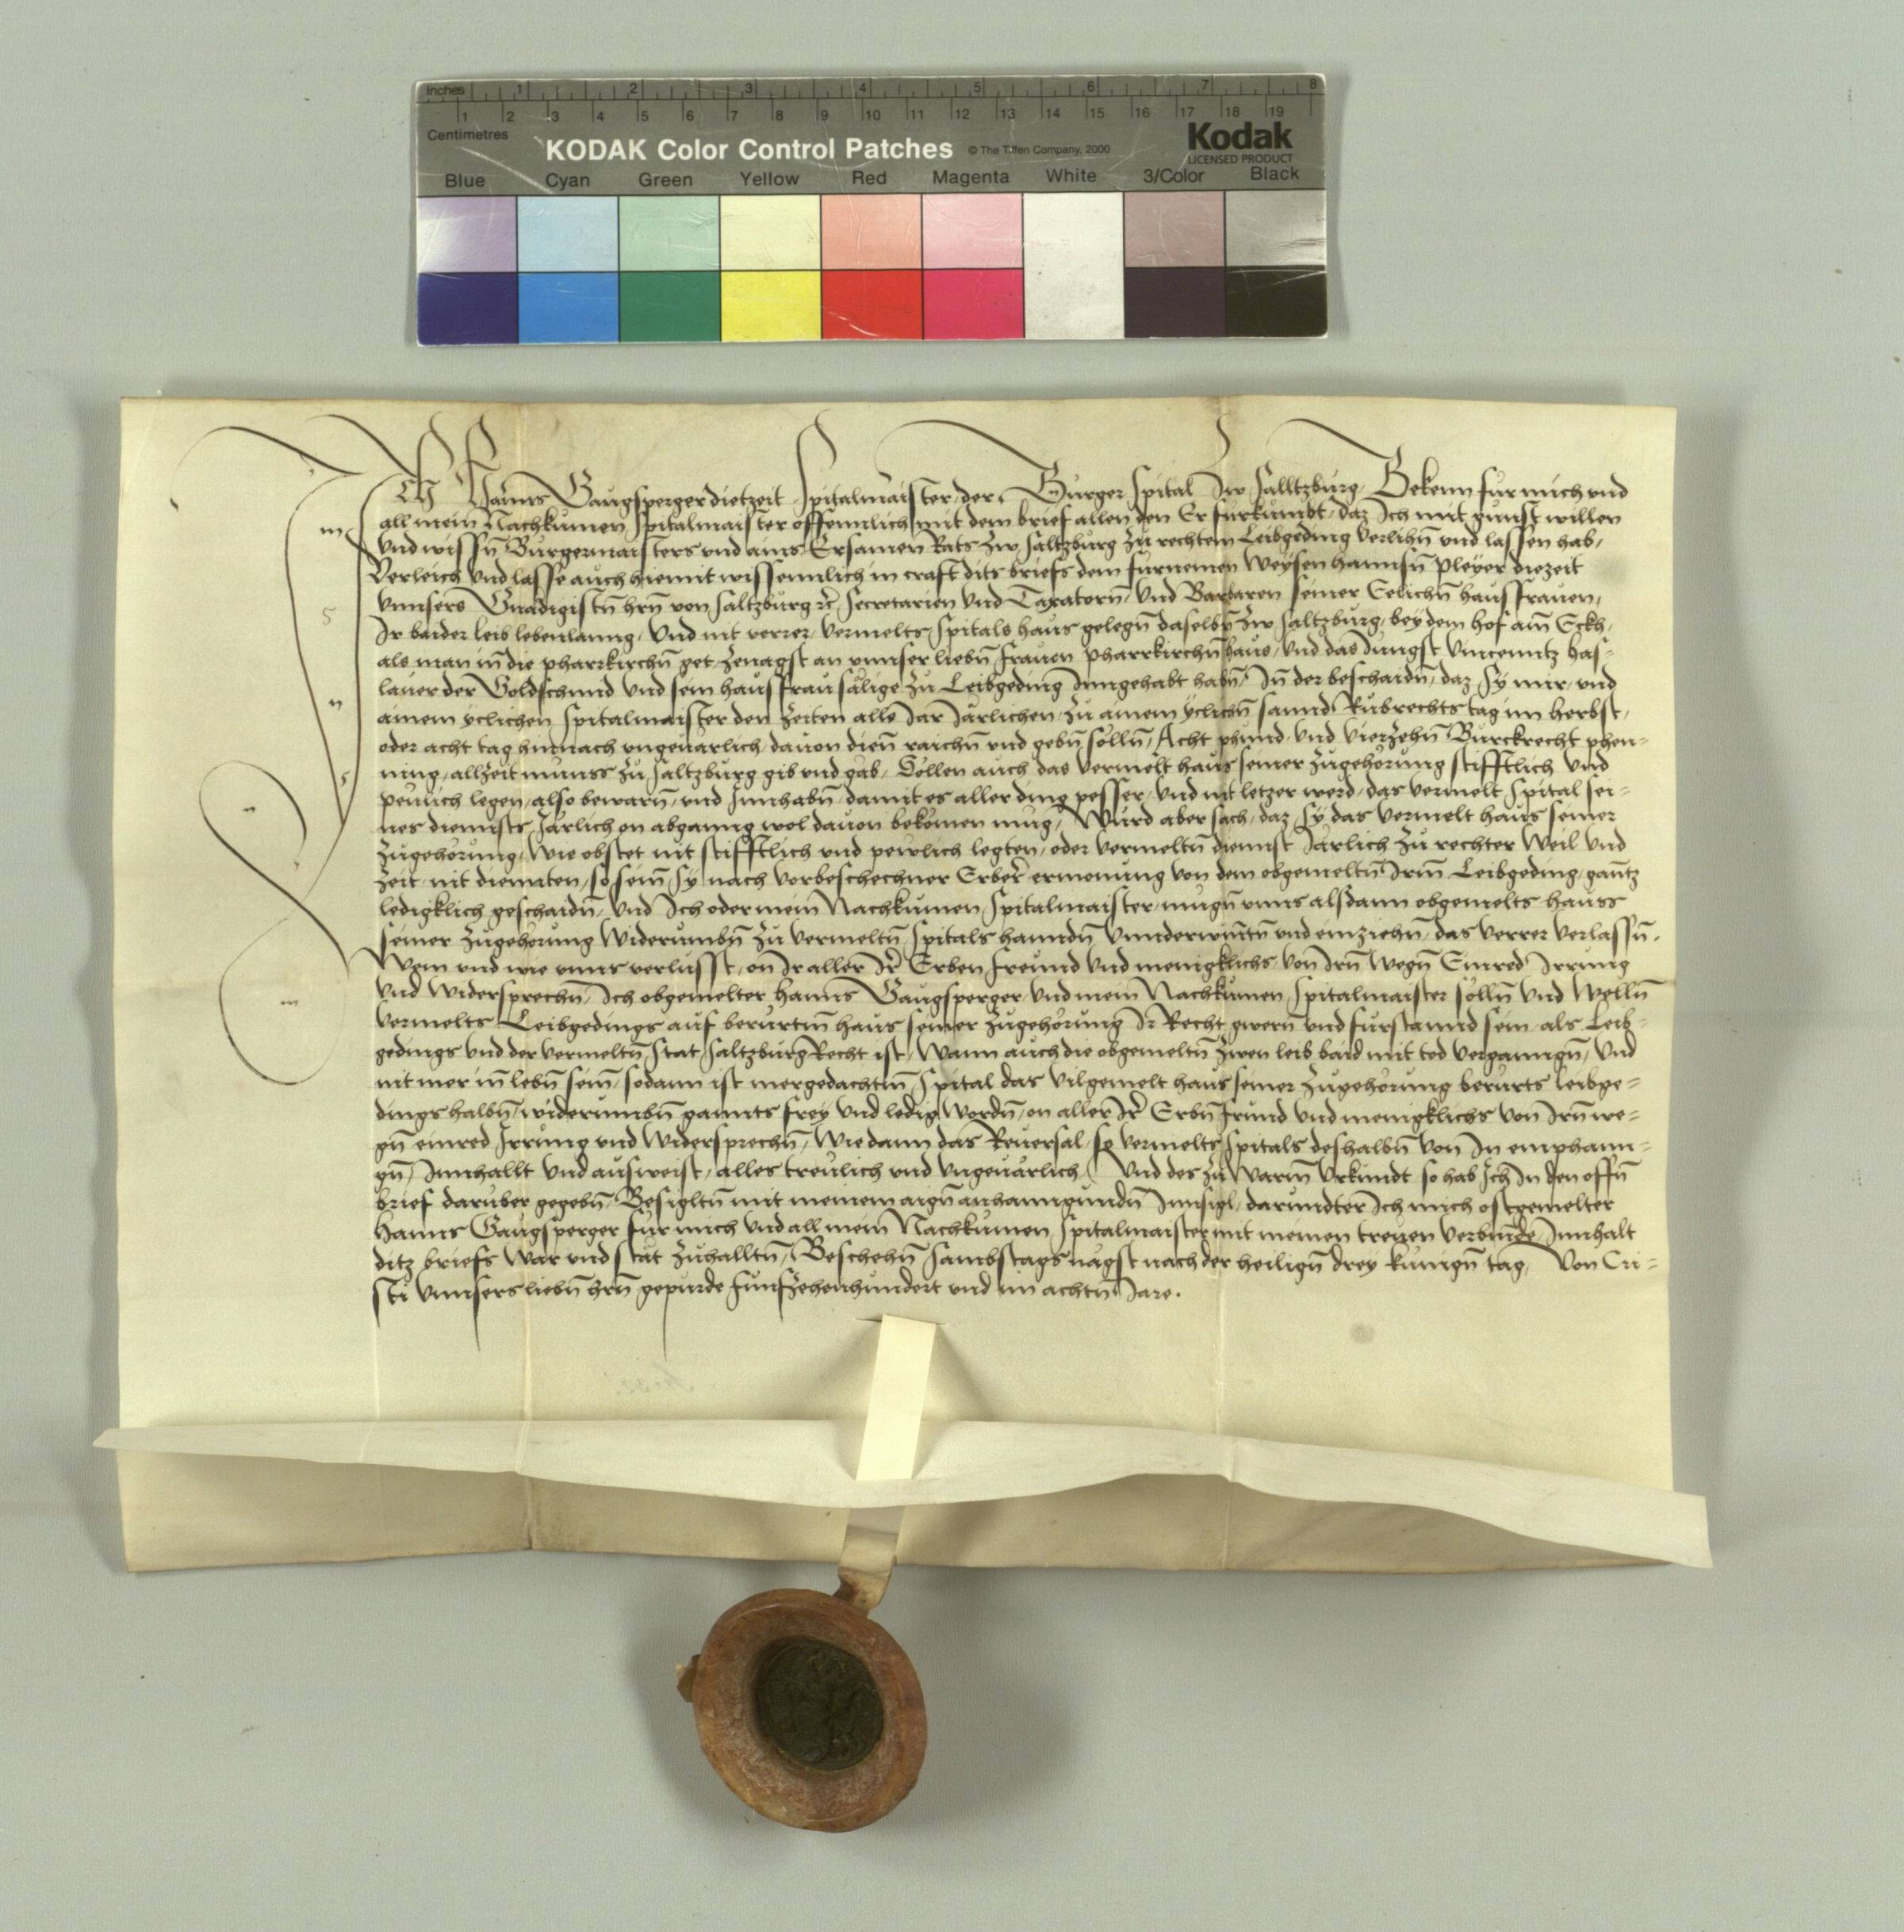 Inches 1 2 3 4 5 6 7 8
1 2 3 4 5 6 7 8 9 10 11 12 13 14 15 16 17 18 19
Centimetres
KODAK Color Control Patches © The Tiffen Company, 2000 Kodak
LICENSED PRODUCT
Blue Cyan Green Yellow Red Magenta White 3/Color Black
Ich Hanns Gaugsperger dietzeit Spitalmaister der Burger Spital Zw Salltzburg, Bekenn fur mich vnd
all mein Nachkumen Spitalmaister offennlich mit dem brief allen den Er furkumbt, daz Ich mit gunst willen
vnd wissn̄ Burgermaisters vnd ains Ersamen Rats Zw Saltzburg Zu rechtem Leibgeding verlihn̄ vnd lassen hab,
Verleich vnd lasse auch hiemit wissennlich in craft dits briefs dem furnemen Weysen hannsn̄ Pleyer diezeit
vnnsers Gnadigistn̄ hrn̄ von Saltzburg rc̄ Secretarien vnd Taxatorn̄, vnd Barbaren seiner Eelichn̄ hausfrauen,
Ir baider leib lebenlanng, vnd nit verrer, vermelts Spitals haus gelegn̄ daselbn̄ Zw Saltzburg, bey dem hof am̄ Eckh,
als man in̄ die pharrkirchn̄ get, Zenagst an vnnser liebn̄ frauen pharrkirchn̄ haus, vnd das Jungst Vincenntz has=
lauer der Goldschmid vnd sein hausfrau sälige Zu Leibgeding Inngehabt habn̄, In̄ der beschaidn̄, daz Sy mir, vnd
ainem yclichen Spitalmaister den Zeiten alle Jar Järlichen, Zu ainem yclichn̄ sannd Rubrechts tag im herbst,
oder acht tag hinnach vngeuärlich, dauon dien̄ raichn̄ vnd gebn̄ sölln̄, Acht phund, vnd vierzehn̄ Burckrecht phen=
ning, allzeit munss zu Saltzburg gib vnd gäb, Sollen auch das vermelt haus seiner Zugehörung stifftlich vnd
peulich legen, also bewarn̄, vnd Innhabn̄, damit es aller ding pesser, vnd nit letzer werd, das vermelt Spital sei=
nes diennsts Järlich on abganng wol dauon bekomen mug, Wurd aber sach, daz Sy das vermelt haus seiner
Zugehörung, wie obstet nit stifftlich vnd pewlich legten, oder vermeltn̄ diennst Järlich Zu rechter Weil vnd
Zeit nit diennten, so sein̄ Sy nach vorbeschechner Erber̄ ermonung von dem obgemeltn̄ Irm̄ Leibgeding, ganntz
ledigklich geschaidn̄, vnd Ich oder mein Nachkumen Spitalmaister, mugn̄ vnns alsdann obgemelts hauss
seiner Zugehörung Widerumbn̄ Zu vermeltn̄ Spitals hanndn̄ vnnderwintn̄ vnd einziehn̄, das verrer verlassn̄,
Wem vnd wie vnns verlusst, on Ir aller Ir̄ Erben freund vnd menigklichs, von Irn̄ wegn̄ Einred Irrung
vnd Widersprechn̄, Ich obgemelter hanns Gaugsperger, vnd mein Nachkumen Spitalmaister sölln̄ vnd Wölln̄
vermelts Leibgedings auf berurtm̄ haus seiner Zugehörung Ir Recht gwern̄ vnd furstannd sein, als Leib=
gedings vnd der vermeltn̄ Stat Saltzburg Recht ist, Wann auch die obgemeltn̄ Zwen leib baid mit tod vergangn̄, vnd
nit mer in̄ lebn̄ sein̄, sodann ist mergedachtm̄ Spital das vilgemelt haus seiner Zugehörung berurts Leibge=
dings halbn̄, widerumbn̄ gannts frey vnd ledig wordn̄, on aller Ir̄ Erbn̄ frund vnd menigklichs von Irn̄ we=
gn̄ einred Irrung vnd Widersprechn̄, Wie dann das Reuersal, so vermelts Spitals deshalbn̄ von In emphann=
gn̄, Innhallt vnd ausweist, alles treulich vnd vngeuärlich, Vnd des Zu warm̄ vrkundt so hab Ich In den offn̄
brief darüber gegebn̄, Besigltn̄ mit meinem aign̄ anhanngundn̄ Innsigl, darundter Ich mich ofstgemelter
Hanns Gaugsperger fur mich vnd all mein Nachkumen Spitalmaister mit meinen treuen verbinde Innhalt
ditz briefs War vnd stät Zuhalltn̄, Beschehn̄ Sambstags nägst nach der heilign̄ drey kunign̄ tag, Von Cri=
sti vnnsers liebn̄ hrn̄ gepurde funfzehenhundert vnd im achtn̄ Jare.